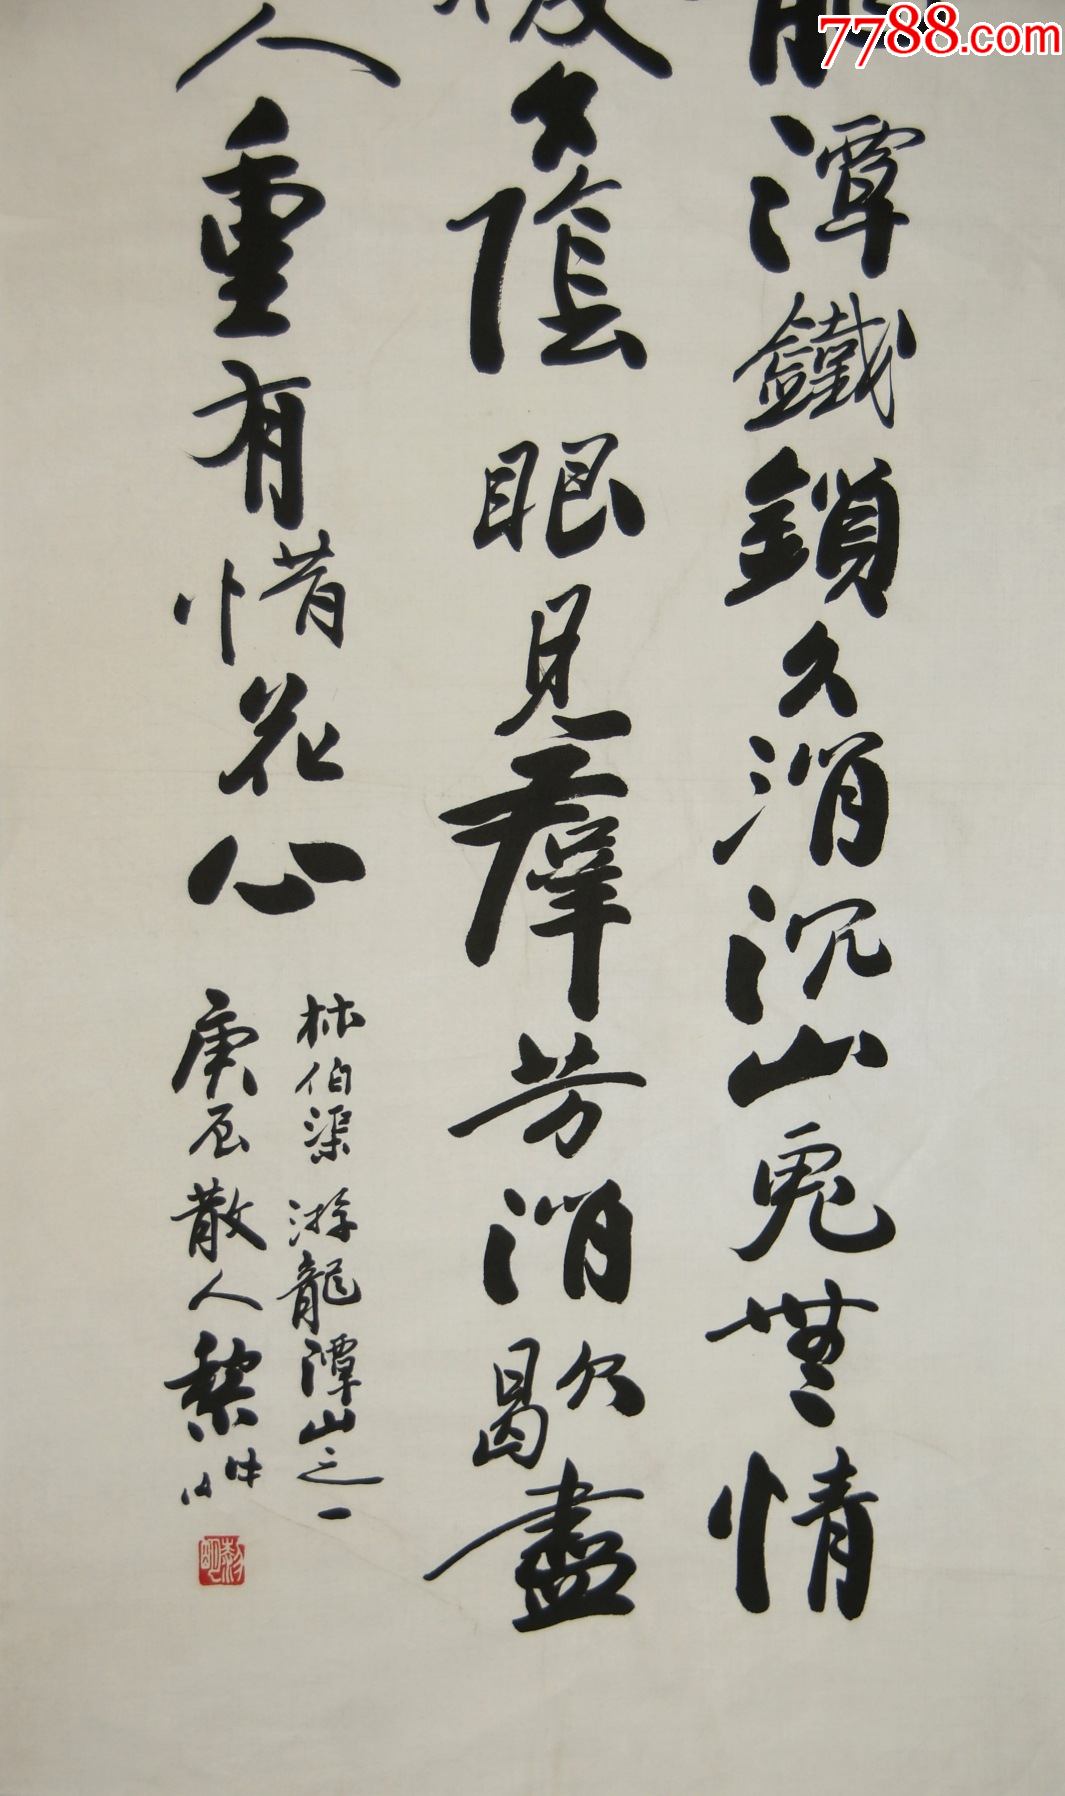 7788.com
潭鐵鎖久消沉山鬼無情
陰眼見羣芳消歇盡
人重有惜花心
林伯渠游龍潭山之一
庚辰散人黎